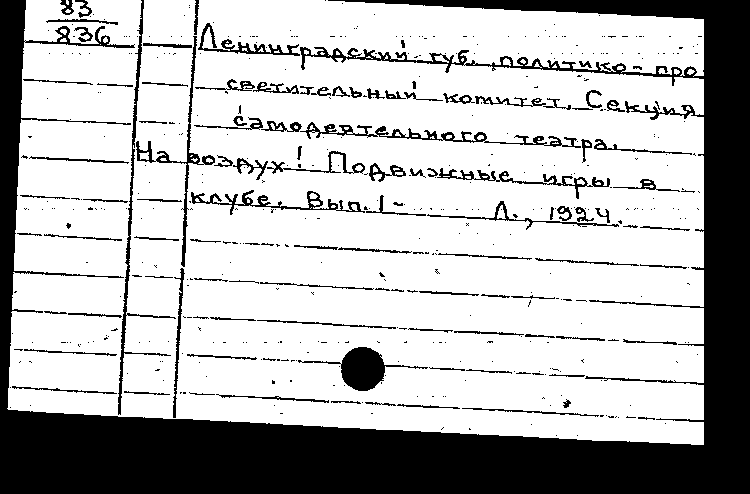 83
836
Ленинградский губ. политико-про
светительный комитет. Секция
самодеятельного театра.
На воздух! Подвижные игры в
клубе. Вып. 1- Л., 1924.